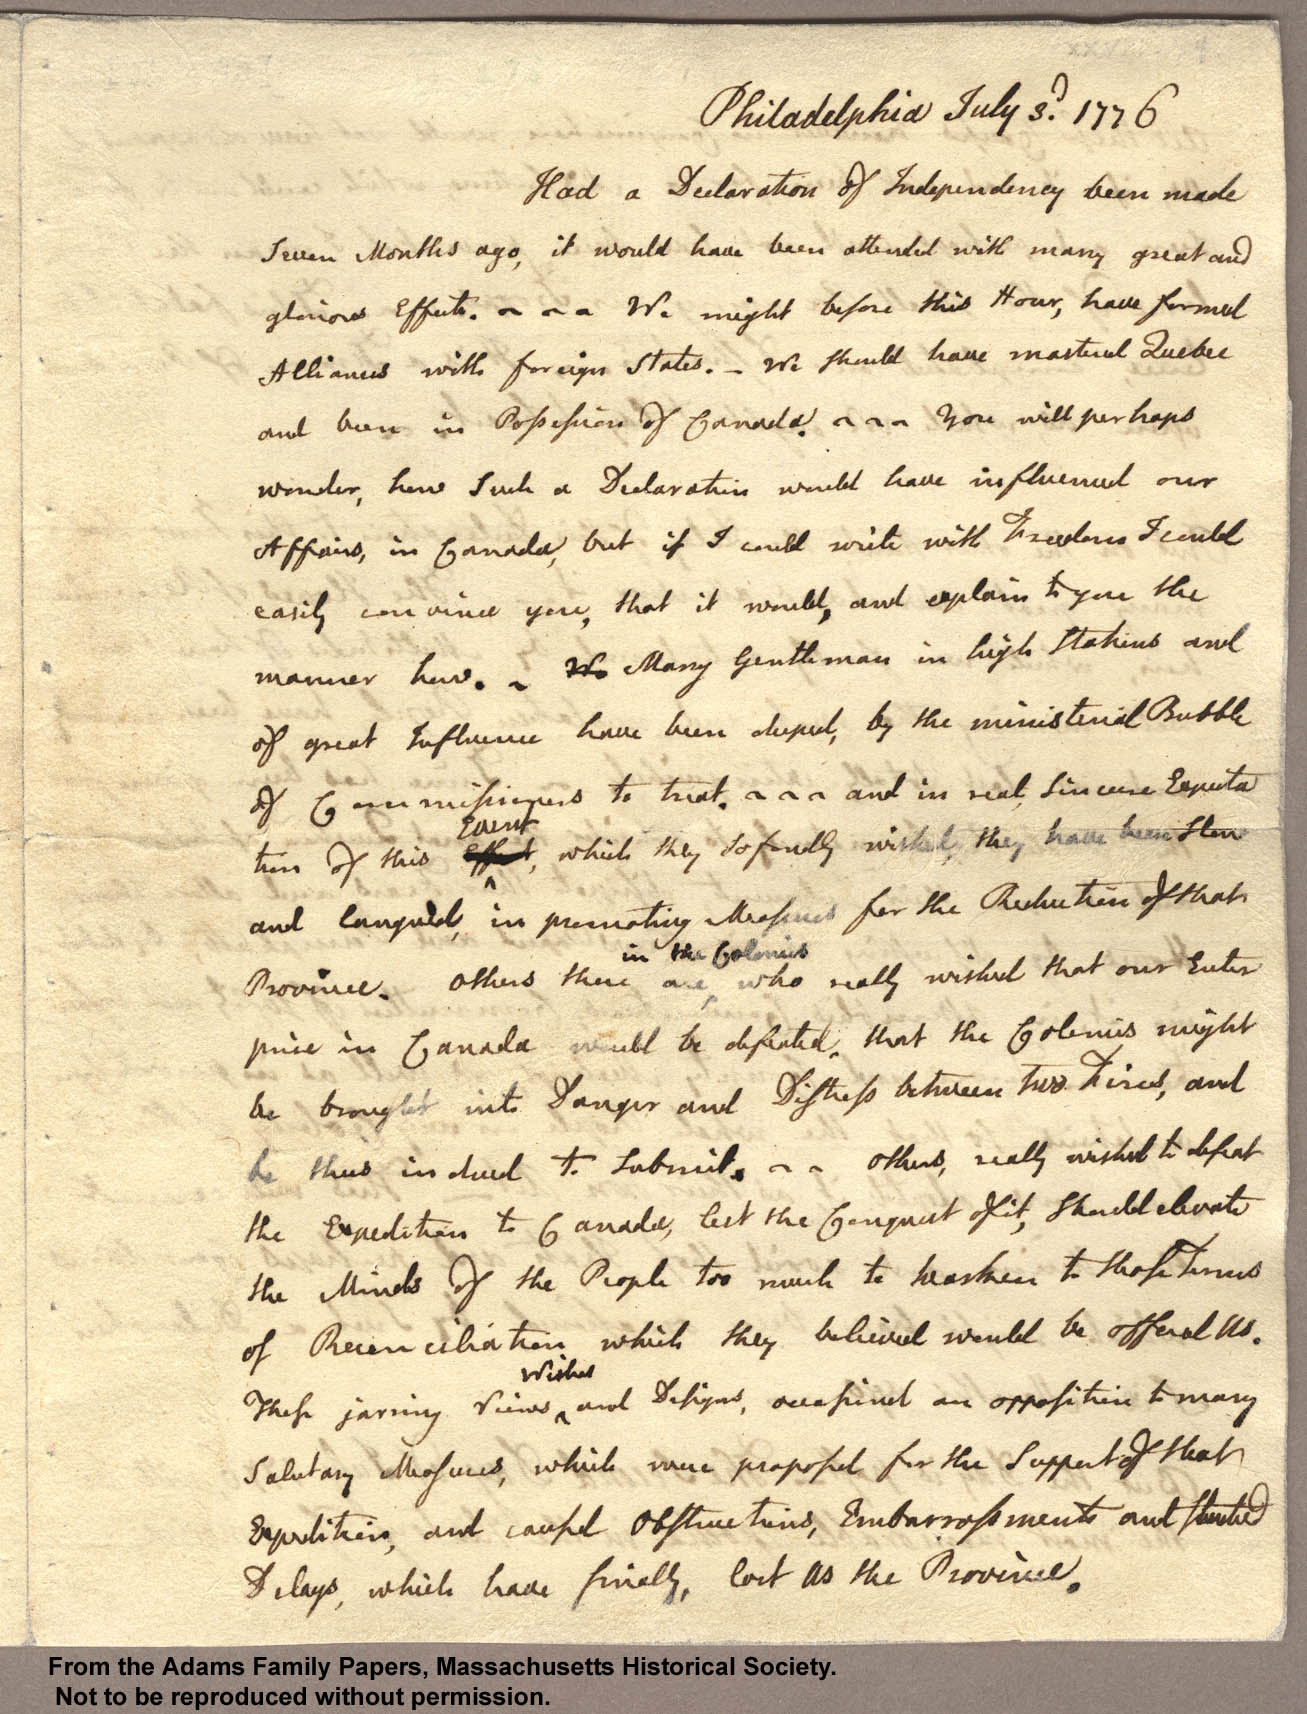 Philadelphia July 3d. 1776
Had a Declaration of Independency been made
seven Months ago, it would have been attended with many great and
glorious Effects. ~ ~ ~ We might before this Hour, have formed
Alliances with foreign States. — We should have mastered Quebec
and been in Possession of Canada. ~ ~ ~ You will perhaps
wonder, how such a Declaration would have influenced our
Affairs, in Canada, but if I could write with Freedom I could
easily convince you, that it would, and explain to you the
manner how. ~ We Many Gentlemen in high Stations and
of great Influence have been duped, by the ministerial Bubble
of Commissioners to treat. ~ ~ ~ and in real, sincere Expecta
Event
tion of this Effect, which they so fondly wished, they have been slow
and languid, in promoting Measures for the Reduction of that
in the Colonies
Province. Others there are, who really wished that our Enter
prise in Canada would be defeated, that the Colonies might
be brought into Danger and Distress between two Fires, and
be thus induced to submit. ~ ~ Others, really wished to defeat
the Expedition to Canada, lest the Conquest of it, should elevate
the Minds of the People too much to hearken to those Terms
of Reconciliation which they believed would be offered Us.
Wishes
These jarring Views and Designs, occasioned an opposition to many
salutary Measures, which were proposed for the Support of that
Expedition, and caused Obstructions, Embarrassments and studied
Delays, which have finally, lost Us the Province.
From the Adams Family Papers, Massachusetts Historical Society.
Not to be reproduced without permission.